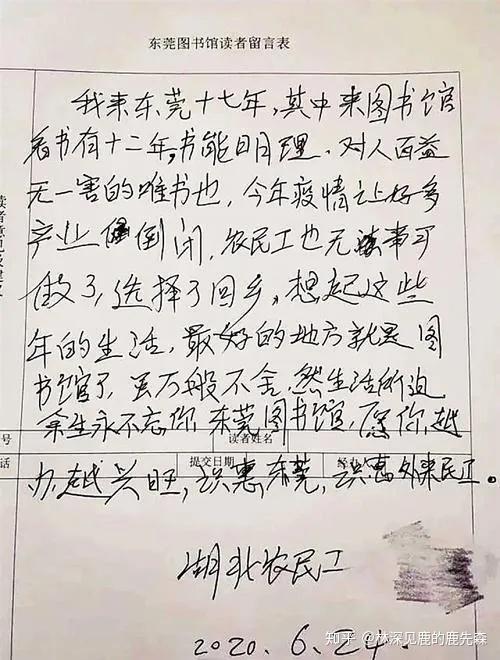 东莞图书馆读者留言表
我来东莞十七年,其中来图书馆
看书有十二年,书能明理、对人百益
无一害的唯书也,今年疫情让好多
产业倒闭,农民工也无事可
做了,选择了回乡,想起这些
年的生活,最好的地方就是图
书馆了,虽万般不舍,然生活所迫
余生永不忘你,东莞图书馆,愿你越
办越兴旺,识惠东莞,识惠外来民工。
号
读者姓名
话
提交日期
经办人
湖北农民工
2020.6.24.
知乎 @林深见鹿的鹿先森